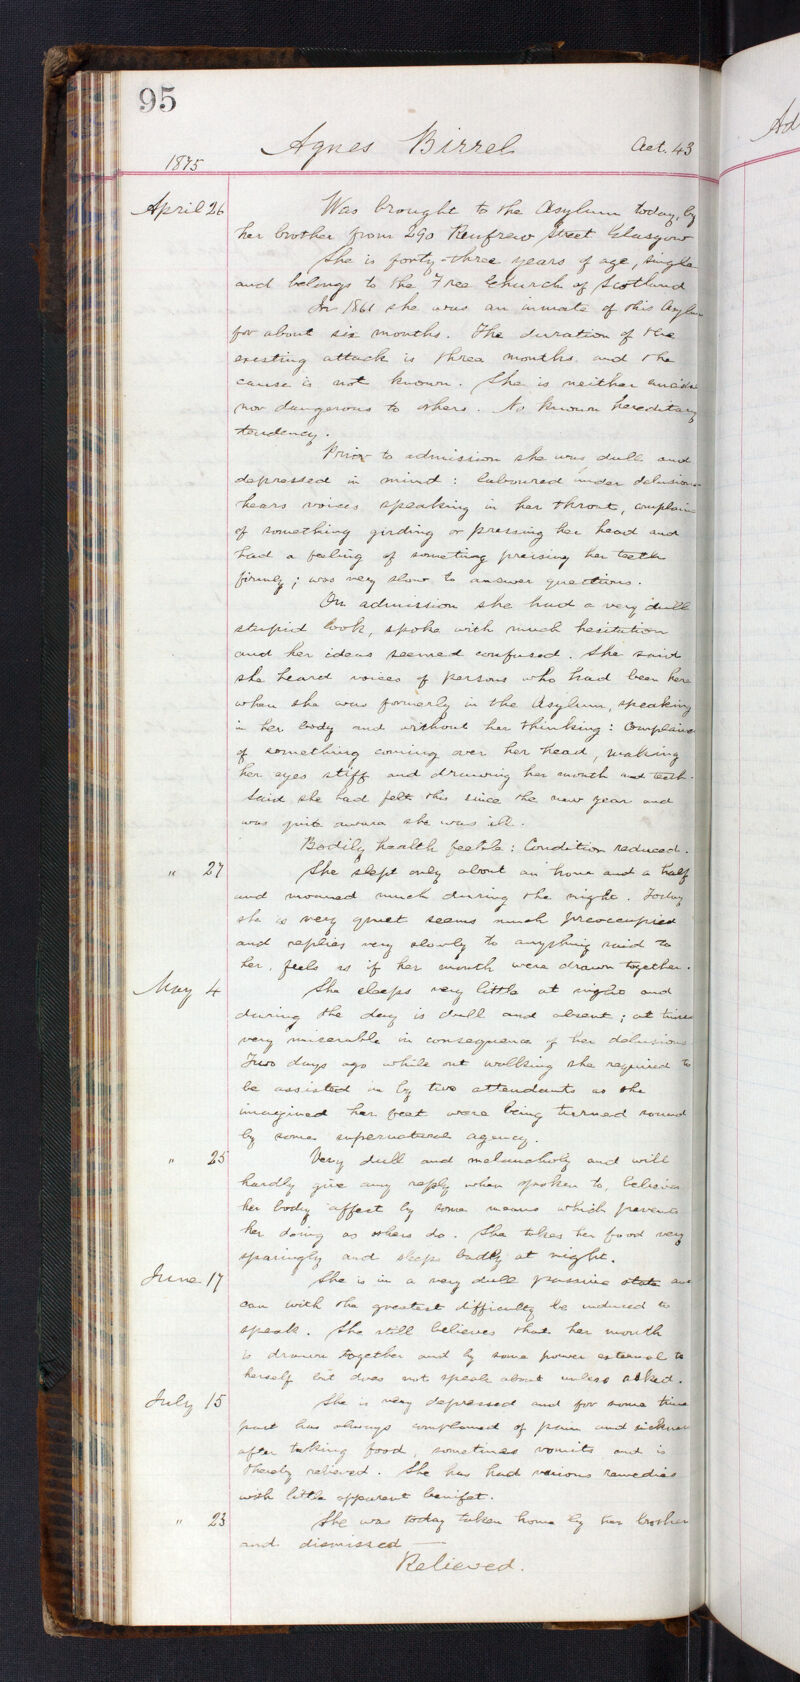 95
1875 Agnes Birrel Aet. 43
April 26 Was brought to the Asylum today, by
her brother from 290 Renfrew Street Glasgow
She is forty-three years of age, single
and belongs to the Free Church of Scotland
In 1861 she was an inmate of this Asylum
for about six months. The duration of the
existing attack is three months and the
cause is not known. She is neither suicidal
nor dangerous to others. No known hereditary
tendency.
Prior to admission she was dull and
depressed in mind: laboured under delusions
hears voices speaking in her throat, complains
of something girding or pressing her head and
had a feeling of something pressing her teeth
firmly; was very slow to answer questions.
On admission she had a very dull
stupid look, spoke with much hesitation
and her ideas seemed confused. She said
she heard voices of persons who had been here
when she was formerly in the Asylum, speaking
in her body and without her thinking: Complains
of something coming over her head, making
her eyes stiff and drawing her mouth and teeth.
Said she had felt this since the new year and
was quite aware she was ill.
Bodily health feeble: Condition reduced.
" 27 She slept only about an hour and a half
and moaned much during the night. Today
she is very quiet seems much preoccupied
and replies very slowly to anything said to
her, feels as if her mouth were drawn together.
May 4 She sleeps very little at night and
during the day is dull and absent; at times
very miserable in consequence of her delusions
Two days ago while out walking she required to
be assisted in by two attendants as she
imagined her feet were being turned round
by some supernatural agency.
" 25 Very dull and melancholy and will
hardly give any reply when spoken to, believes
her body affect by some means which prevents
her doing as others do. She takes her food very
sparingly and sleeps badly at night.
June 17 She is in a very dull passive state and
can with the greatest difficulty be induced to
speak. She still believes that her mouth
is drawn together and by some power external to
herself but does not speak about unless asked.
July 15 She is very depressed and for some time
past has always complained of pain and sickness
after taking food, sometimes vomits and is
thereby relieved. She has had various remedies
with little apparent benifet.
" 23 She was today taken home by her brother
and dismissed
Relieved.
Ad